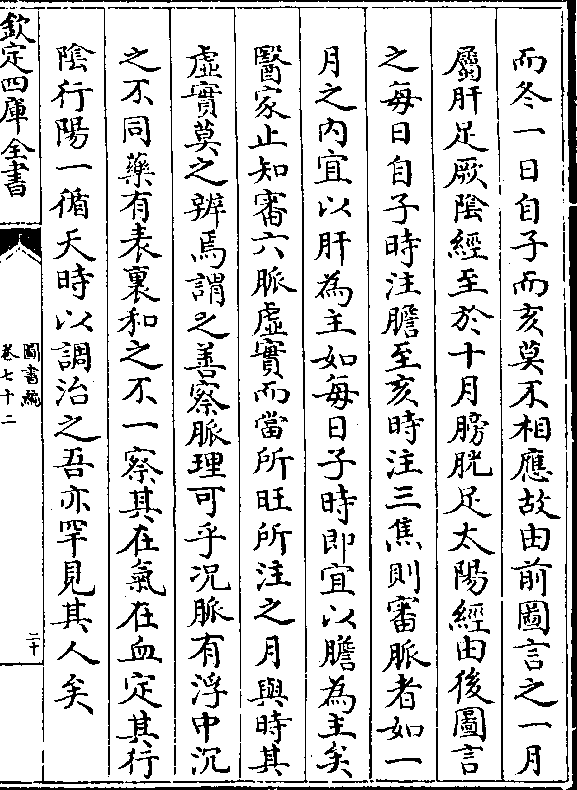 而冬一日自子而亥莫不相應故由前圖言之一月
屬肝足厥陰經至於十月膀胱足太陽經由後圖言
之每日自子時注膽至亥時注三焦則審脈者如一
月之內宜以肝為主如每日子時即宜以膽為主矣
醫家止知審六脈虛實而當所旺所注之月與時其
虛實莫之辨焉謂之善察脈理可乎況脈有浮中沉
之不同藥有表裏和之不一察其在氣在血定其行
陰行陽一循天時以調治之吾亦罕見其人矣
欽定四庫全書
圖書編
卷七十二
二十